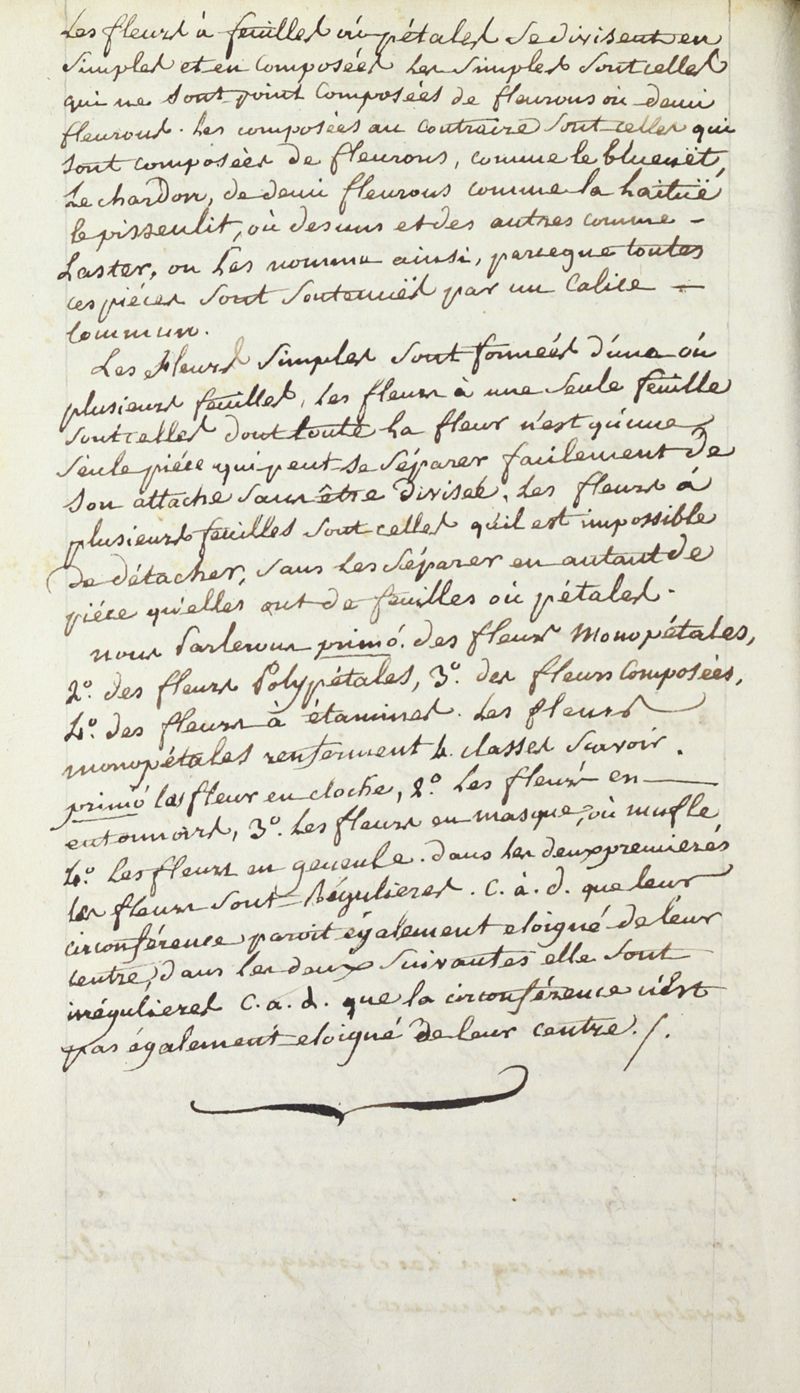 Les fleurs à feuilles où pétales se divisent en
simples et en composées les simples sont celles
qui ne sont point composées de fleurons où demi
fleurons. les composées au contraire sont celles qui
sont composées de fleurons, comme le blueuët,
le chardon, de demi fleurons comme la laituë
le pissenlit, où des uns et des autres comme –
Laster, on les nomme ainsi, parceque toutes
ces piéces sont soutenuës par un calice –
commun.
Les fleurs simples sont formées d'une où
plusieurs feuilles, les fleurs à une seule feuille
sont celles dont toute la fleur n'est qu'une
seule piéce qui peut se séparer facilement de
son attache sans être divisée, les fleurs à
plusieurs feuilles sont celles qu'il est impossible
de détacher, sans les séparer en autant de
piéce qu'elles ont de feuilles où pétales.
nous parlerons primó. des fleurs monopétales,
2.° des fleurs Polypétales, 3.° des fleurs composées,
4.° des fleurs à étamines. les fleurs
monopétales renferment 4. classes scavoir.
primó les fleur en cloche, 2.° les fleurs en
entonnoirs, 3.° les fleurs en masque, où mufle
4.° les fleurs en gueule. dans les deux premierés
les fleurs sont régulieres. c. à. d. que leur
circonférence paroit également eloigné de leur
centre, dans les deux suivantes elle sont
irrégulieres c. a. d. que la circonférence n'est
pas également eloigné de leur centre. /.